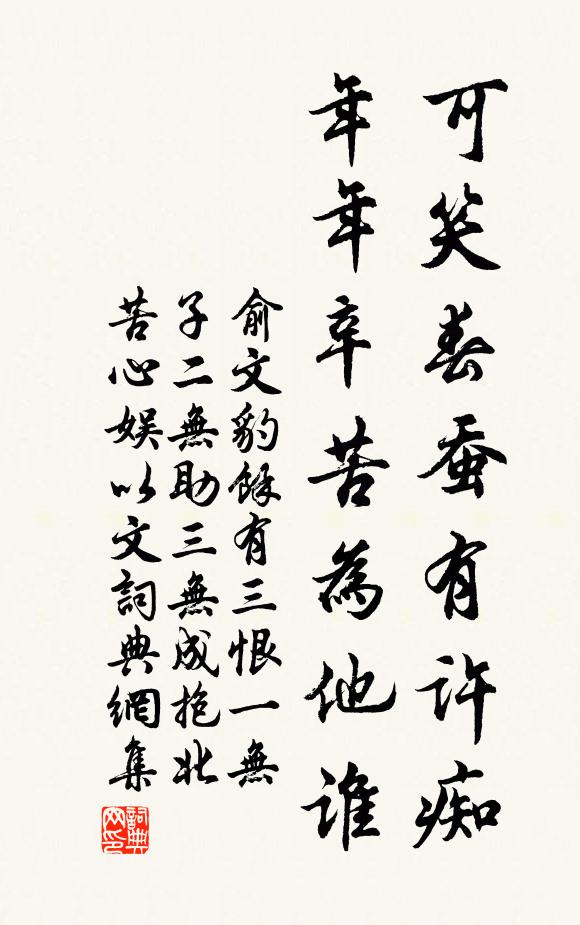 可笑春蚕有許痴
年年辛苦為他谁
俞文豹餘有三恨一無
子二無助三無成抱此
苦心娱以文詞典網集
詞典
网印